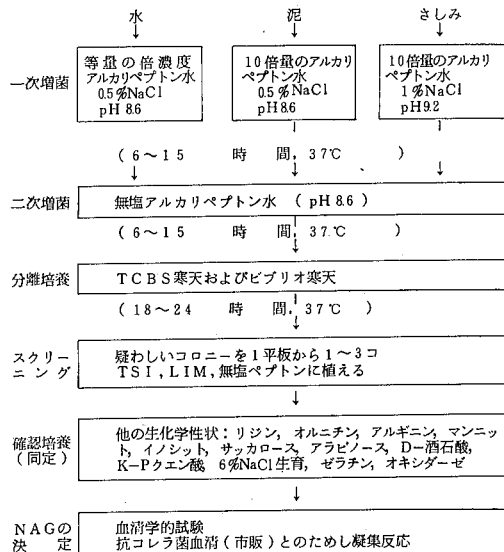 水
泥
さしみ
一次増菌
等量の倍濃度
アルカリペプトン水
0.5%NaCl
pH 8.6
10倍量のアルカリ
ペプトン水
0.5%NaCl
pH8.6
10倍量のアルカリ
ペプトン水
1%NaCl
pH9.2
(6~15 時間, 37℃)
二次増菌
無塩アルカリペプトン水 (pH 8.6)
(6~15 時間, 37℃)
分離培養
TCBS寒天およびビブリオ寒天
(18~24 時間, 37℃)
スクリー
ニング
疑わしいコロニーを1平板から1~3コ
TSI, LIM, 無塩ペプトンに植える
確認培養
(同定)
他の生化学性状:リジン, オルニチン, アルギニン, マンニッ
ト, イノシット, サッカロース, アラビノース, D-酒石酸,
K-Pクエン酸, 6%NaCl生育, ゼラチン, オキシダーゼ
NAGの
決定
血清学的試験
抗コレラ菌血清(市販)とのためし凝集反応